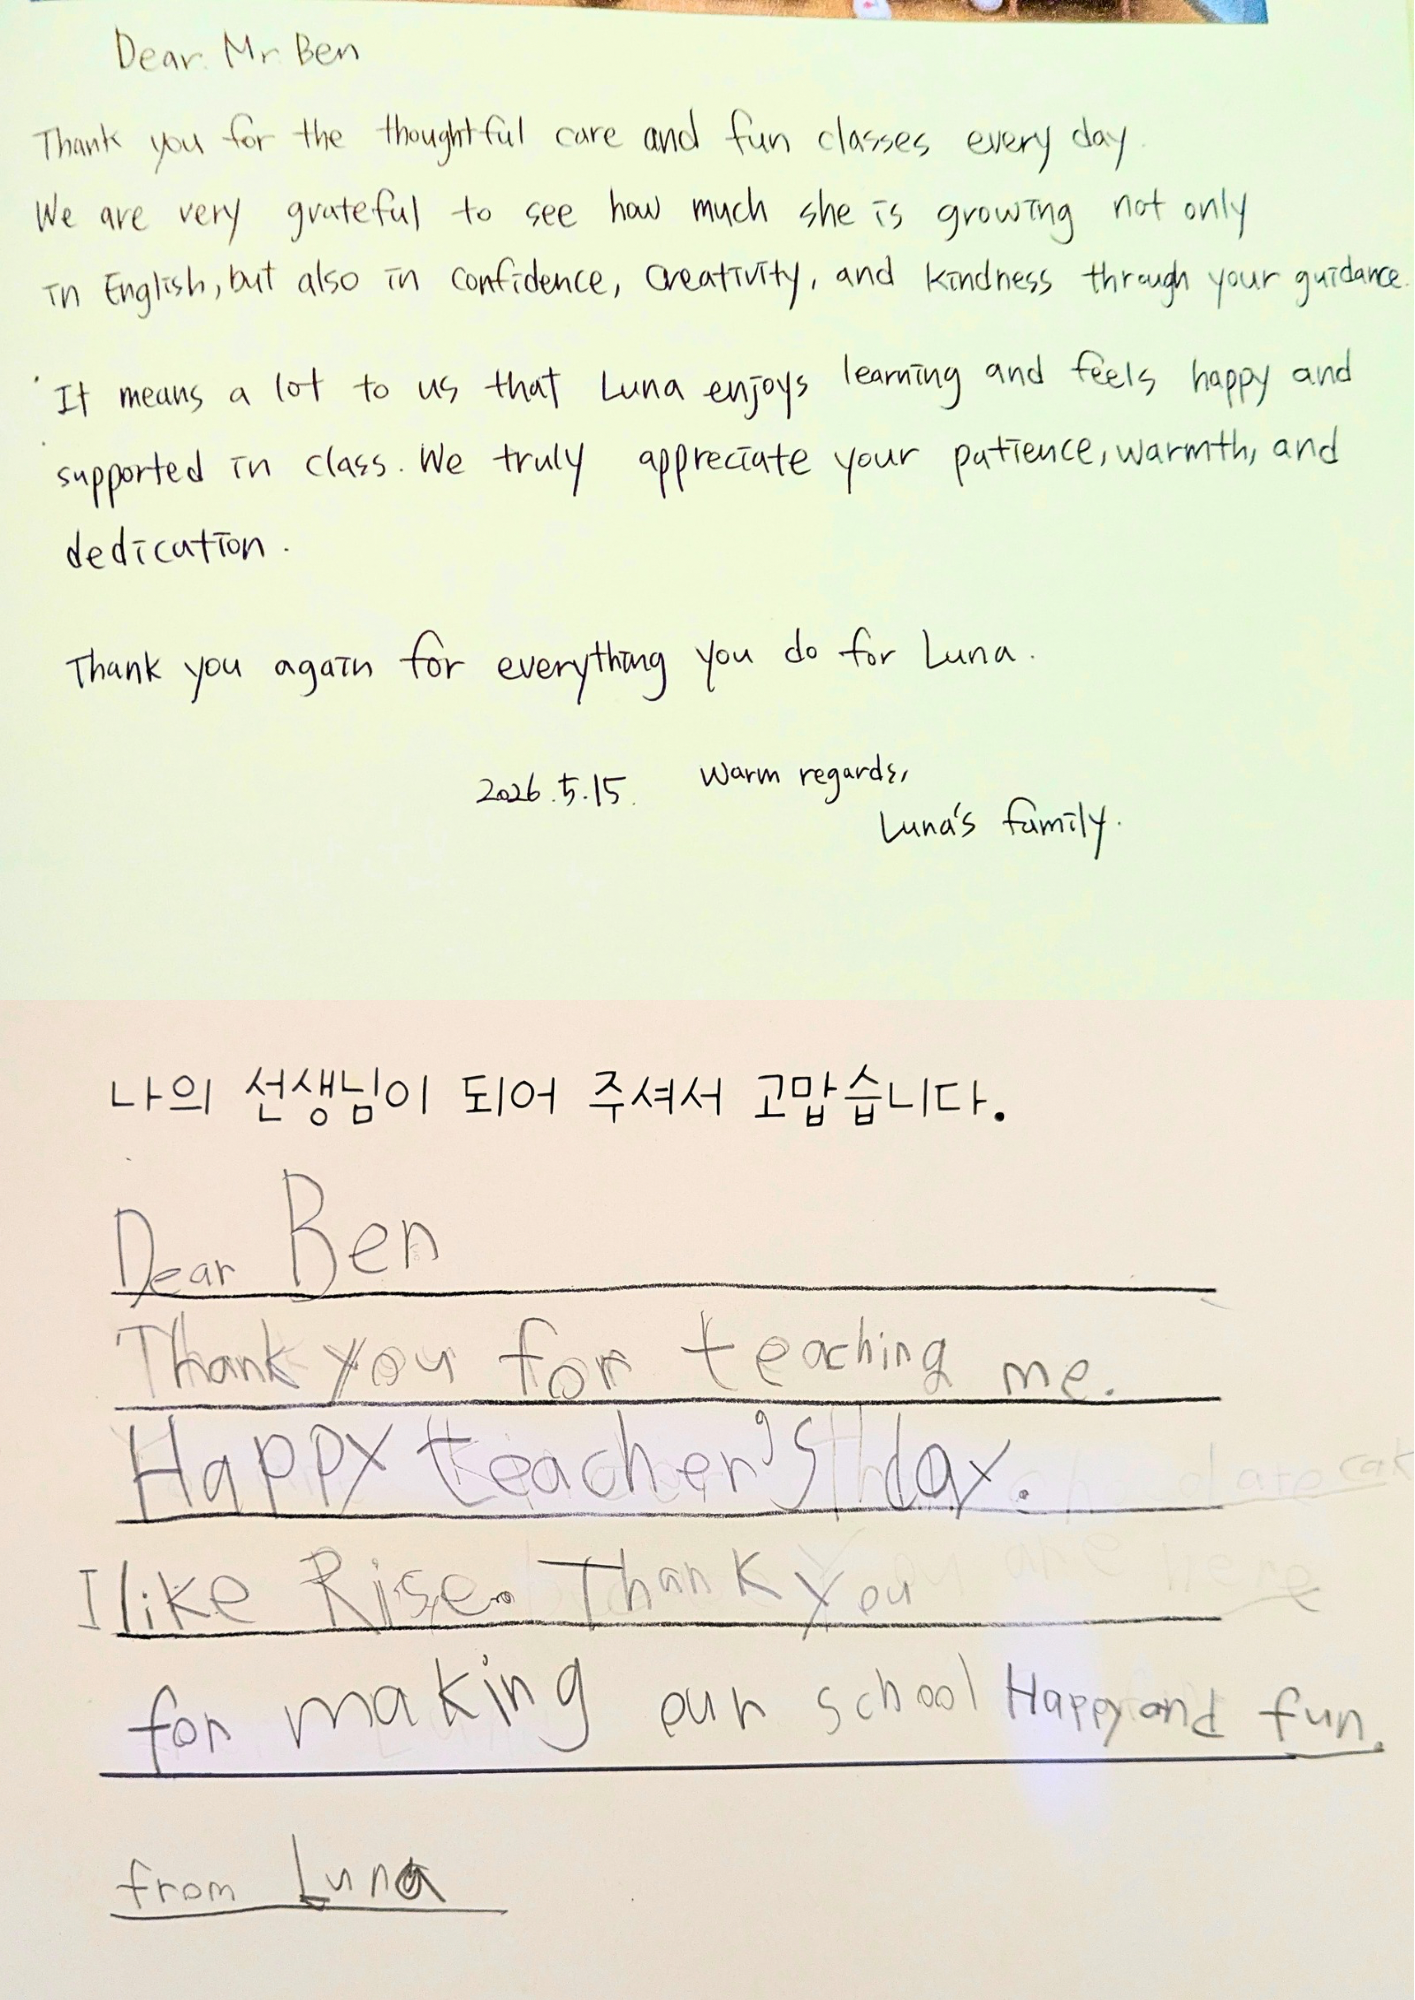 Dear Mr Ben
Thank you for the thoughtful care and fun classes every day.
We are very grateful to see how much she is growing not only
in English, but also in confidence, creativity, and kindness through your guidance.
It means a lot to us that Luna enjoys learning and feels happy and
supported in class. We truly appreciate your patience, warmth, and
dedication.
Thank you again for everything you do for Luna.
2026.5.15. Warm regards,
Luna's family.
나의 선생님이 되어 주셔서 고맙습니다.
Dear Ben
Thank you for teaching me.
Happy teacher's day.
I like Rise. Thank you
for making our school Happy and fun.
from Luna